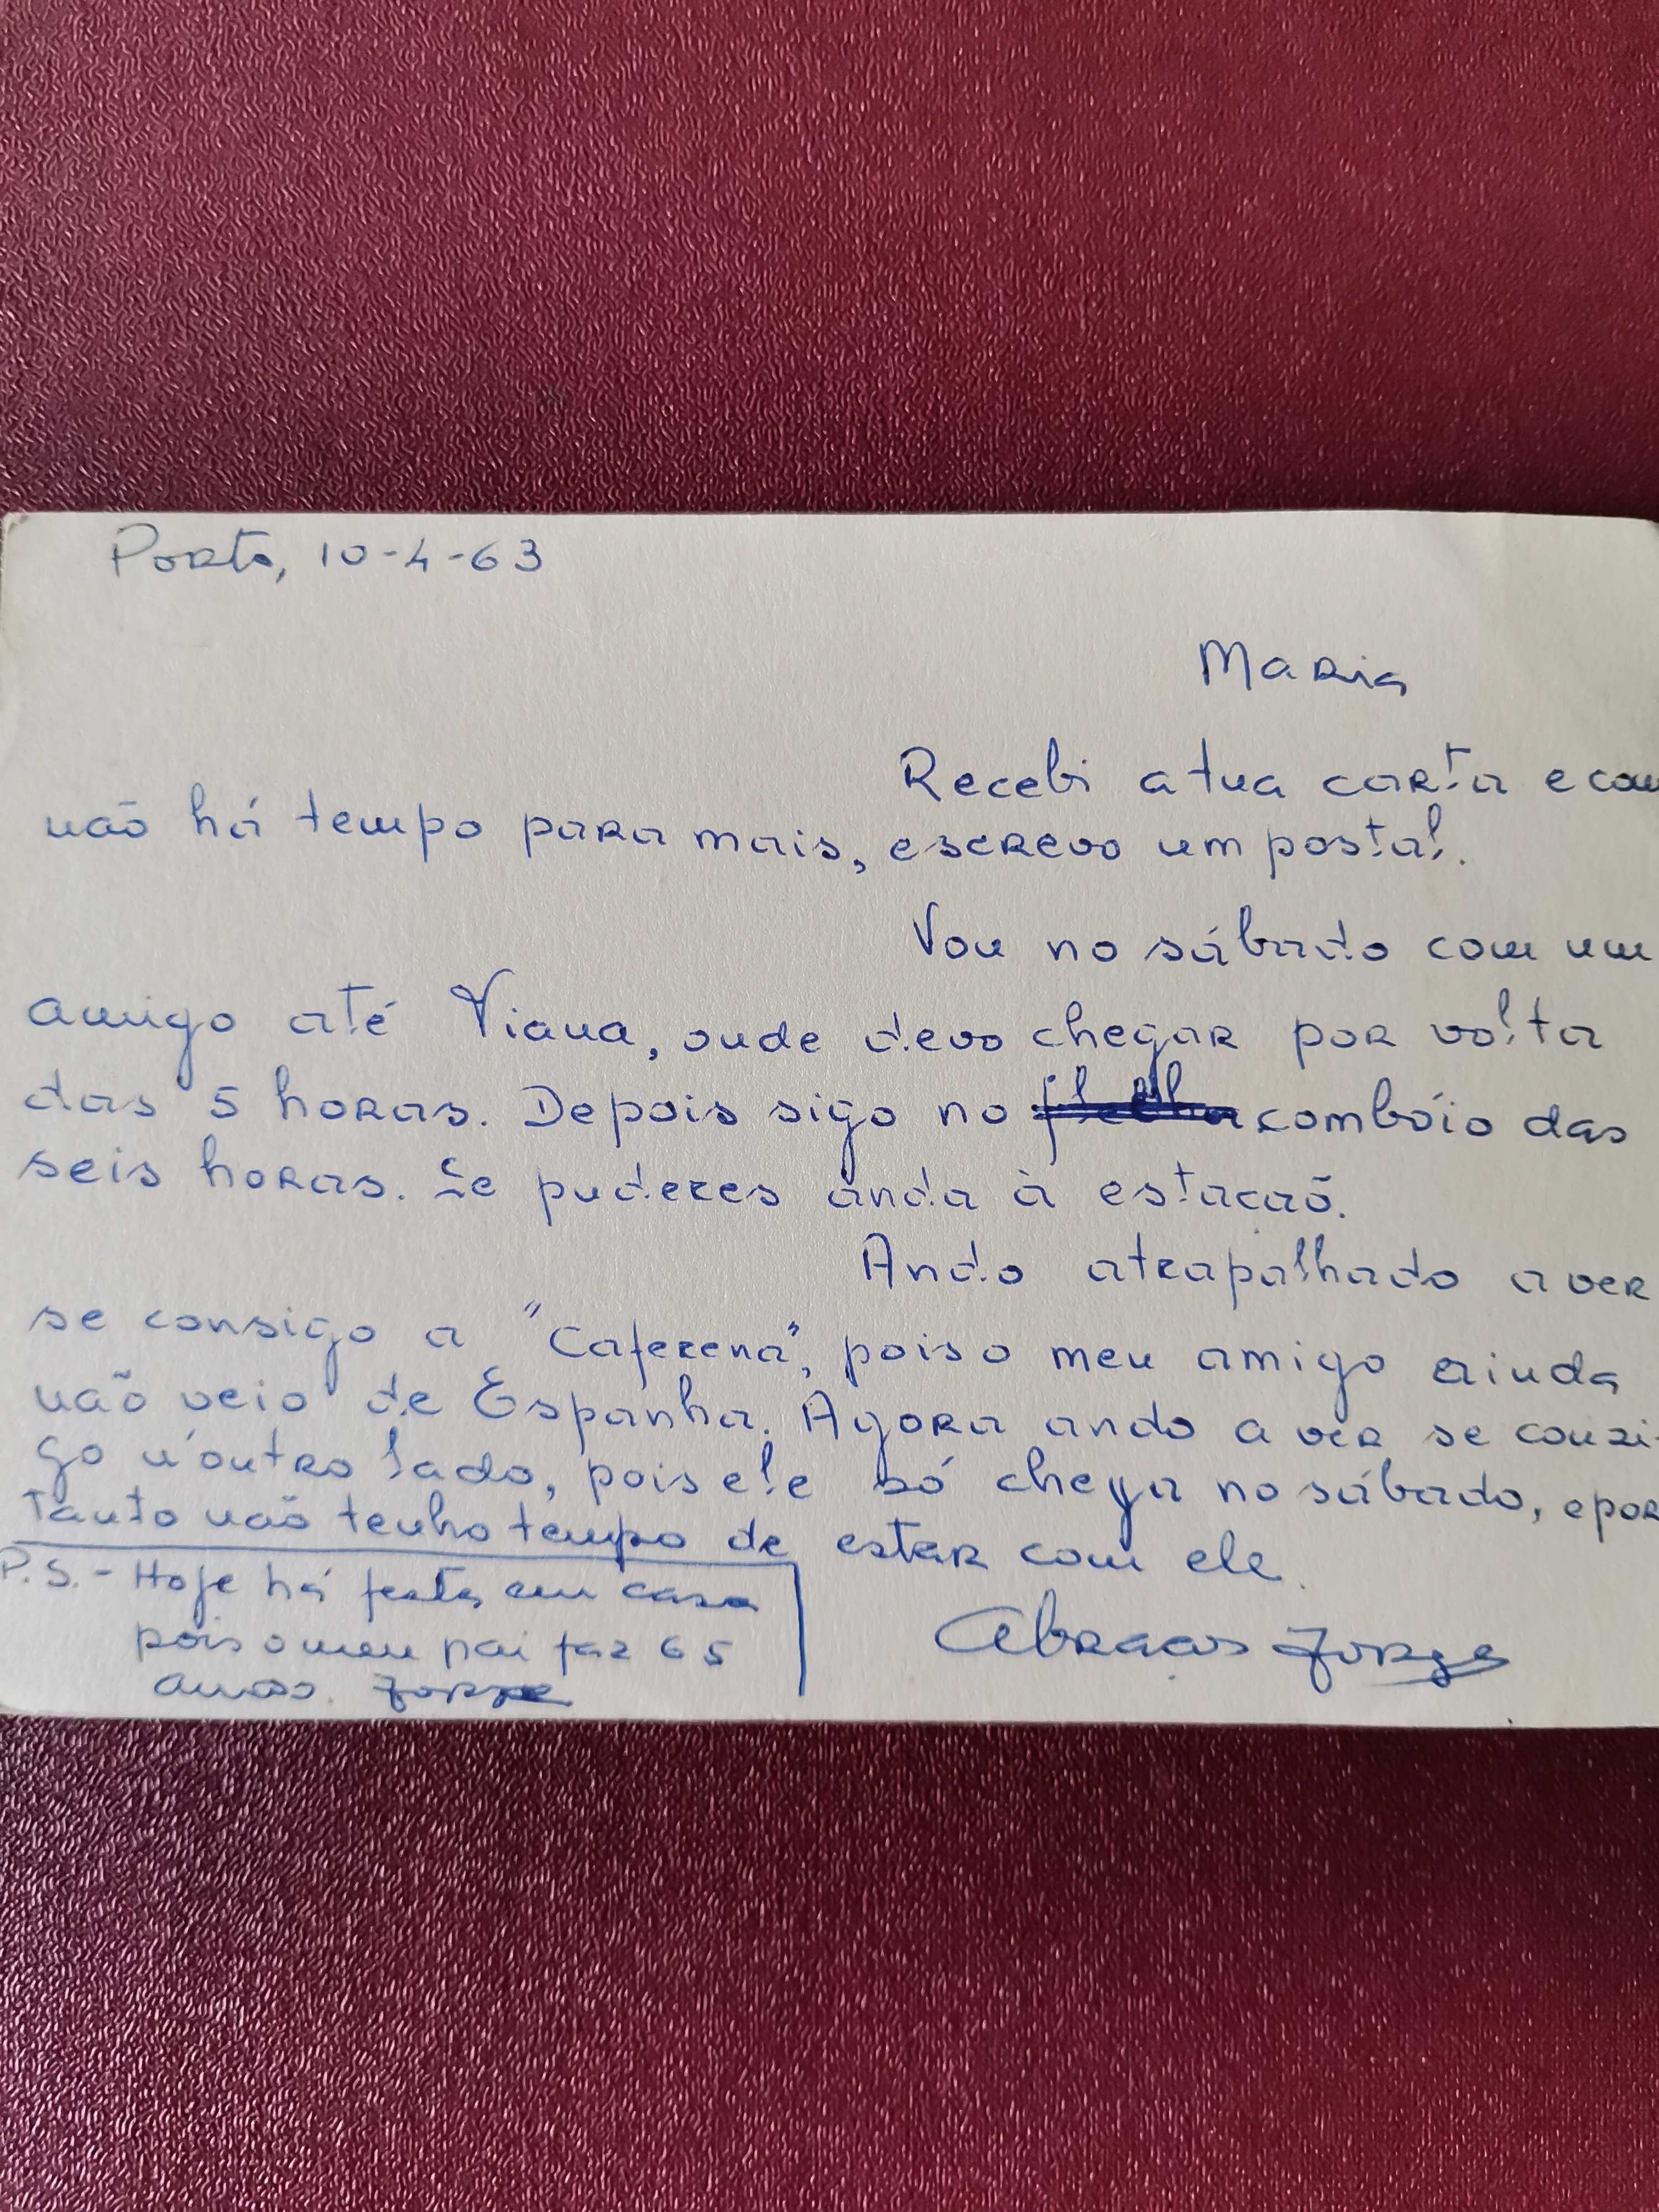 Porto, 10-4-63
Maria
Recebi a tua carta e com
não há tempo para mais, escrevo um postal.
Vou no sábado com um
amigo até Viana, onde devo chegar por volta
das 5 horas. Depois sigo no combóio das
seis horas. Se puderes anda à estacaõ.
Ando atrapalhado a ver
se consigo a "Caferena", pois o meu amigo ainda
não veio de Espanha. Agora ando a ver se consi-
go n'outro lado, pois ele só chega no sábado, e por
tanto não tenho tempo de estar com ele.
Abraços Jorge
P.S. - Hoje há festa em casa
pois o meu pai faz 65
anos. Jorge